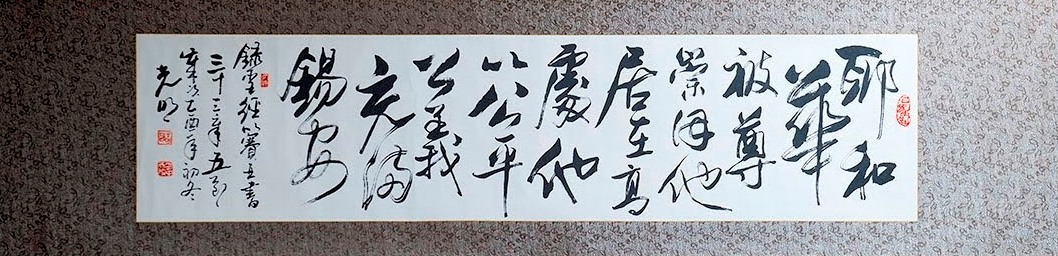 耶和
華
被尊
崇因他
居在高
處他
以公平
公義
充滿
錫安
錄聖經以賽亞書
三十三章五節
歲次乙酉年初冬
光明